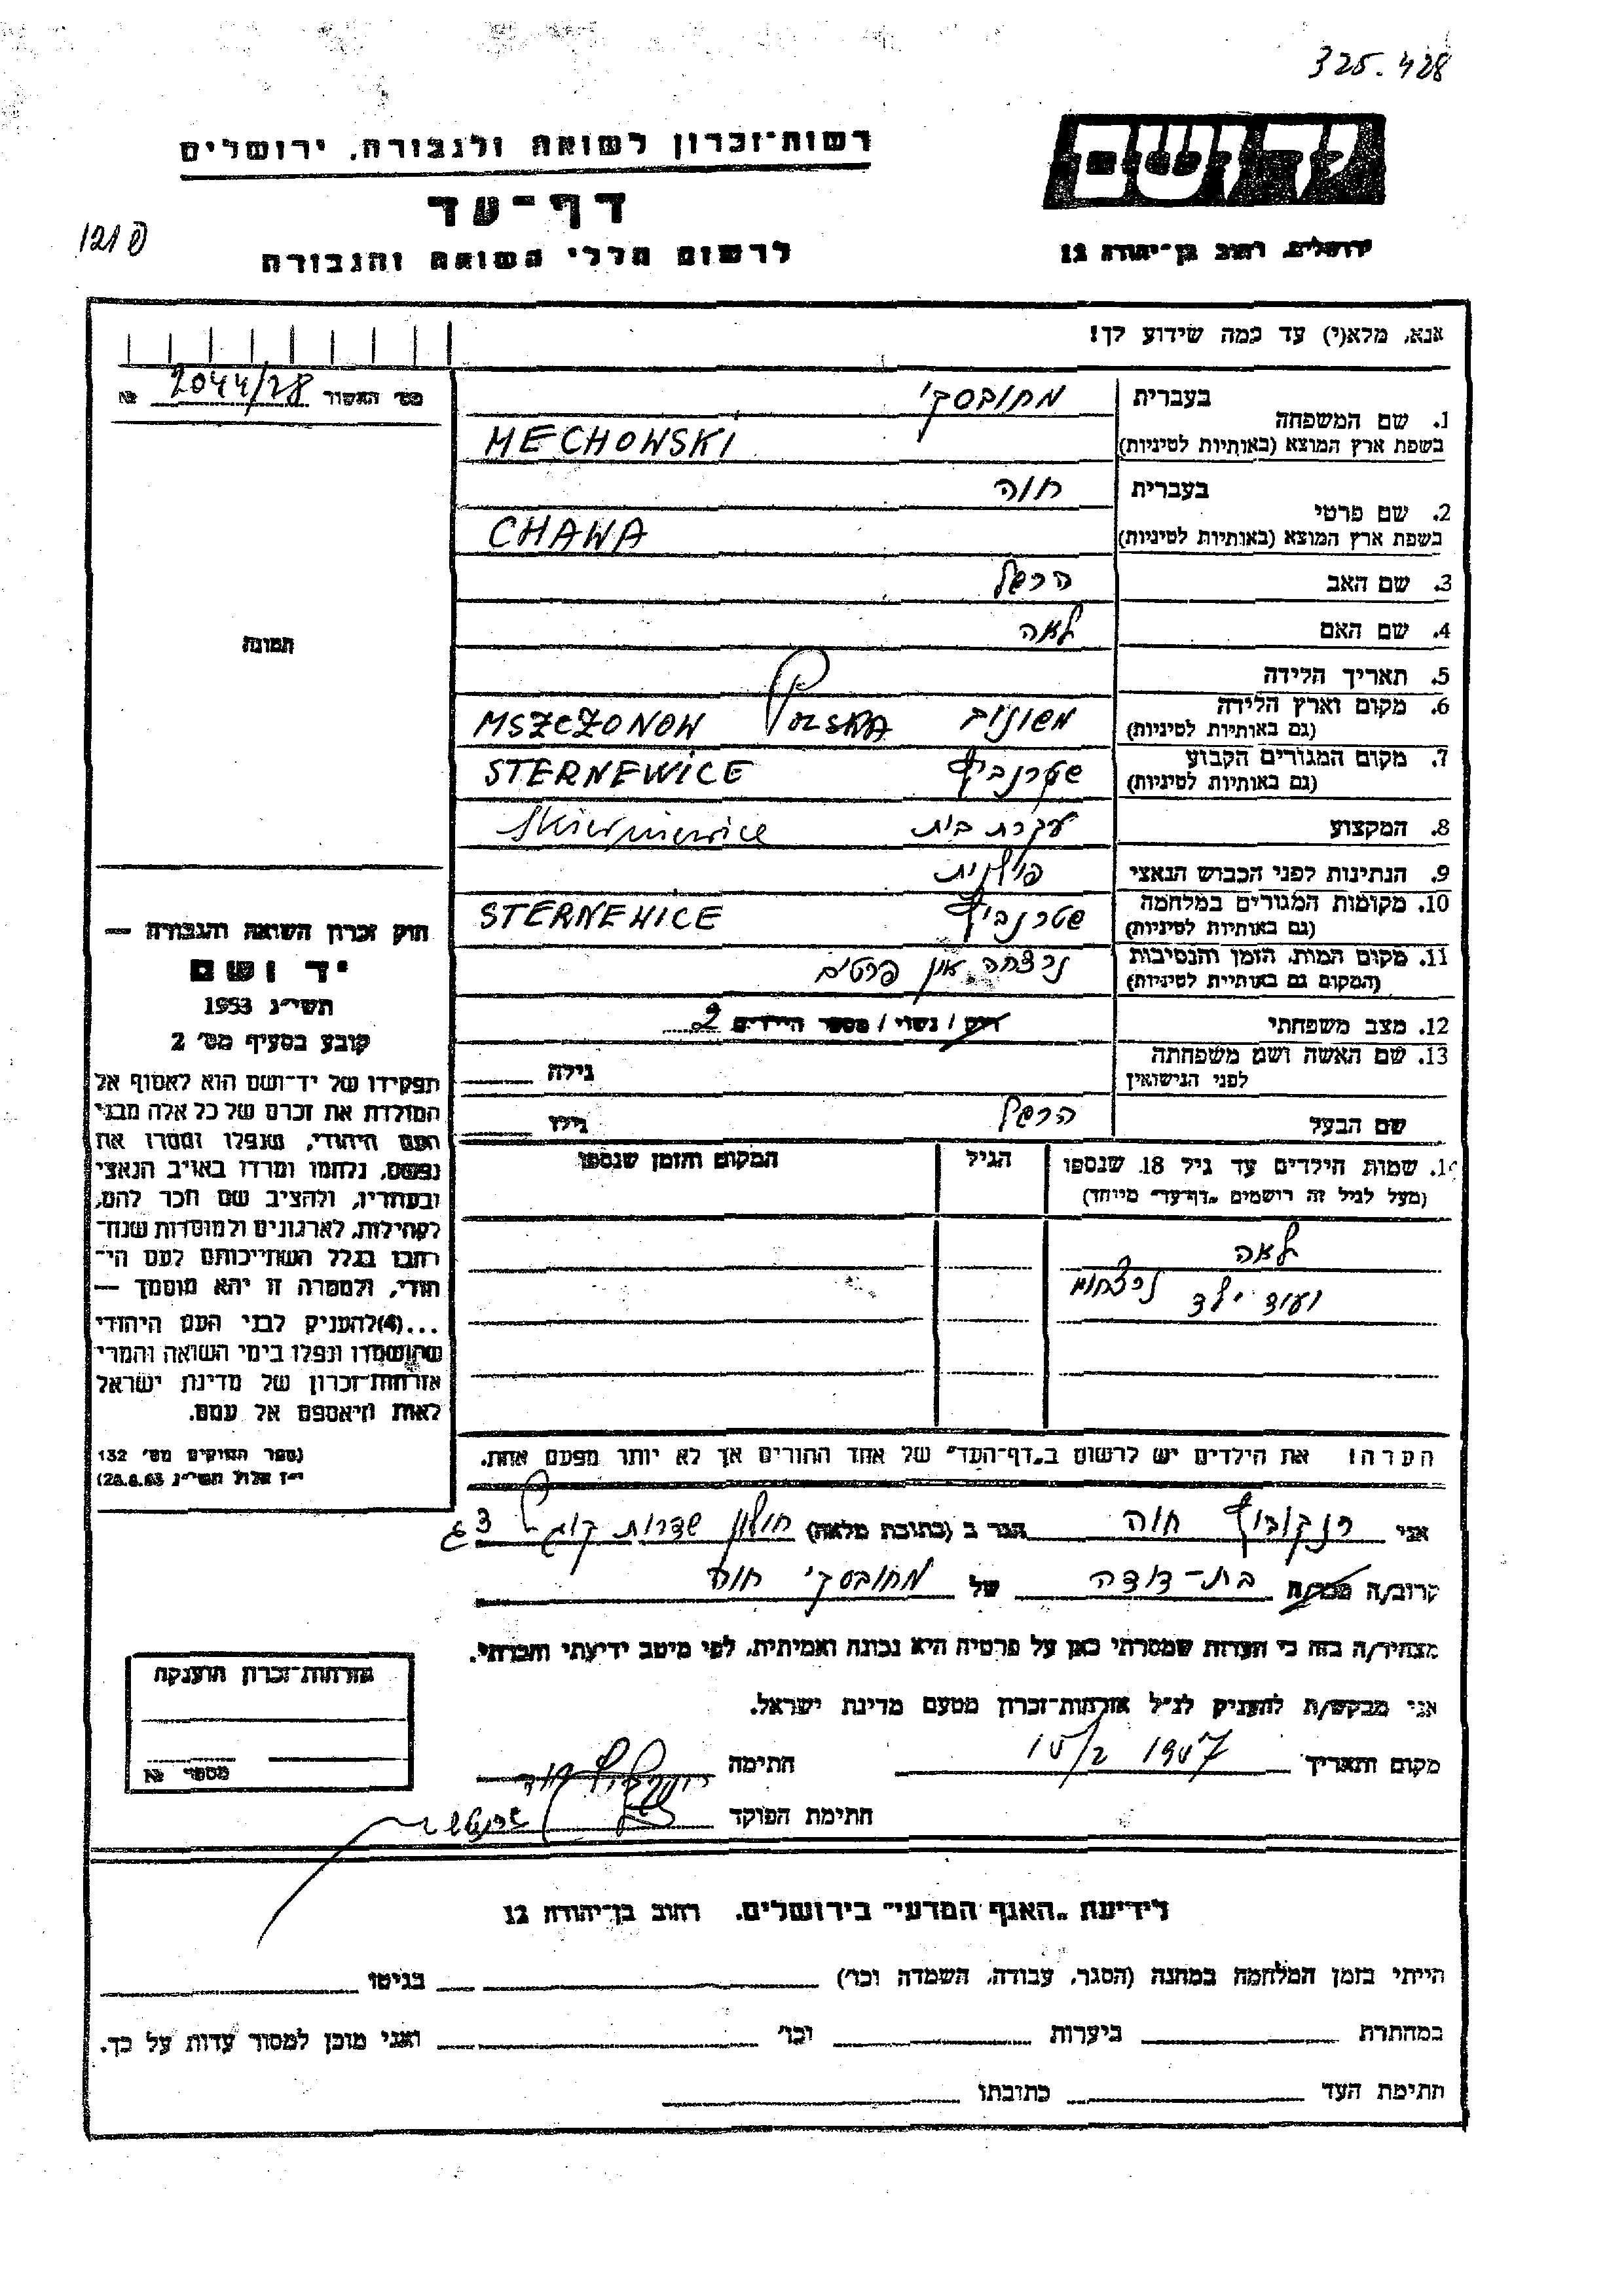 325.428
יד ושם
רשות־זכרון לשואה ולגבורה, ירושלים
דף־עד
לרשום חללי השואה והגבורה
ירושלים, רחוב בן־יהודה 12
אנא, מלא(י) עד כמה שידוע לך!
מס׳ האשור 2044/28 №
1. שם המשפחה
בעברית מחובסקי
בשפת ארץ המוצא (באותיות לטיניות) MECHOWSKI
2. שם פרטי
בעברית חוה
בשפת ארץ המוצא (באותיות לטיניות) CHAWA
3. שם האב הרשל
4. שם האם לאה
5. תאריך הלידה
6. מקום וארץ הלידה משונוב POLSKA MSZCZONOW
(גם באותיות לטיניות)
7. מקום המגורים הקבוע שטרנביץ STERNEWICE
(גם באותיות לטיניות)
8. המקצוע עקרת בית Skierniewice
9. הנתינות לפני הכבוש הנאצי פולנית
10. מקומות המגורים במלחמה שטרנביץ STERNEWICE
(גם באותיות לטיניות)
11. מקום המות, הזמן והנסיבות נרצחה אין פרטים
(המקום גם באותיות לטיניות)
12. מצב משפחתי רווק / נשוי / מספר הילדים 2
13. שם האשה ושם משפחתה
לפני הנישואין
גילה
שם הבעל הרשל גילו
14. שמות הילדים עד גיל 18 שנספו
(מעל לגיל זה רושמים „דף־עד״ מיוחד)
הגיל
המקום והזמן שנספו
לאה
ועוד ילד נרצחו
הערה! את הילדים יש לרשום ב„דף־העד״ של אחד ההורים אך לא יותר מפעם אחת.
תמונה
חוק זכרון השואה והגבורה —
יד ושם
תשי״ג 1953
קובע בסעיף מס׳ 2
תפקידו של יד־ושם הוא לאסוף אל
המולדת את זכרם של כל אלה מבני
העם היהודי, שנפלו ומסרו את
נפשם, נלחמו ומרדו באויב הנאצי
ובעוזריו, ולהציב שם וזכר להם,
לקהילות, לארגונים ולמוסדות שנח־
רבו בגלל השתייכותם לעם הי־
הודי, ולמטרה זו יהא מוסמך —
...(4)להעניק לבני העם היהודי
שהושמדו ונפלו בימי השואה והמרי
אזרחות־זכרון של מדינת ישראל
לאות היאספם אל עמם.
(ספר החוקים מס׳ 132
י״ז אלול תשי״ג 28.8.53)
אני חוה הגר ב (כתובת מלאה) חולון שדרות
קרוב/ה מכר/ה בת-דודה של מחובסקי חוה
מצהיר/ה בזה כי העדות שמסרתי כאן על פרטיה היא נכונה ואמיתית, לפי מיטב ידיעתי והכרתי.
אני מבקש/ת להעניק לנ״ל אזרחות־זכרון מטעם מדינת ישראל.
מקום ותאריך 10/2 1957 חתימה
חתימת הפוקד
אזרחות־זכרון הוענקה
מספר №
לידיעת „האגף המדעי״ בירושלים, רחוב בן־יהודה 12
הייתי בזמן המלחמה במחנה (הסגר, עבודה, השמדה וכו׳) בגיטו
במחתרת ביערות וכו׳ ואני מוכן למסור עדות על כך.
חתימת העד כתובתו